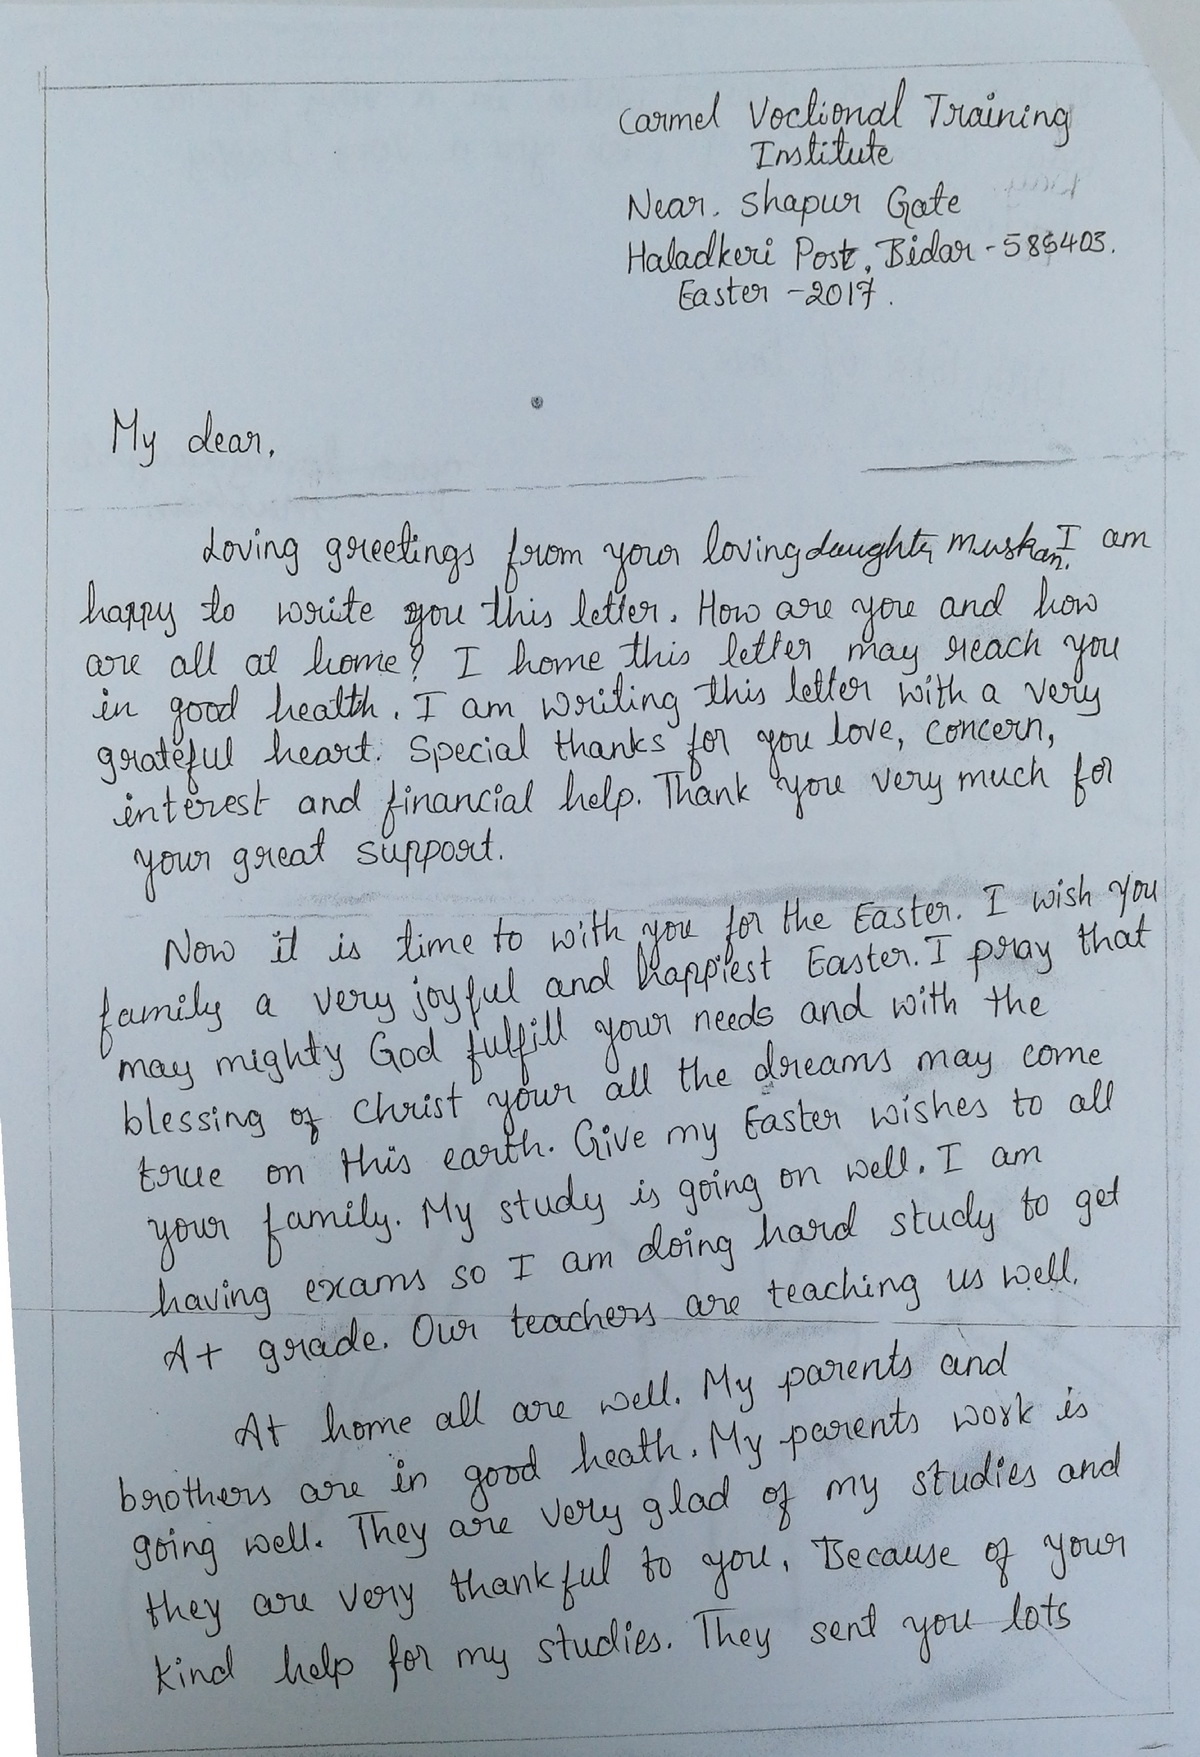 Carmel Voctional Training
Institute
Near. Shapur Gate
Haladkeri Post, Bidar - 585403.
Easter - 2017.
My dear,
Loving greetings from your loving daughter, muskan. I am
happy to write you this letter. How are you and how
are all at home? I home this letter may reach you
in good health. I am writing this letter with a very
grateful heart. Special thanks for you love, concern,
interest and financial help. Thank you very much for
your great support.
Now it is time to with you for the Easter. I wish you
family a very joyful and happiest Easter. I pray that
may mighty God fulfill your needs and with the
blessing of Christ your all the dreams may come
true on this earth. Give my Easter wishes to all
your family. My study is going on well. I am
having exams so I am doing hard study to get
A+ grade. Our teachers are teaching us well.
At home all are well. My parents and
brothers are in good heath. My parents work is
going well. They are very glad of my studies and
they are very thankful to you, Because of your
kind help for my studies. They sent you lots